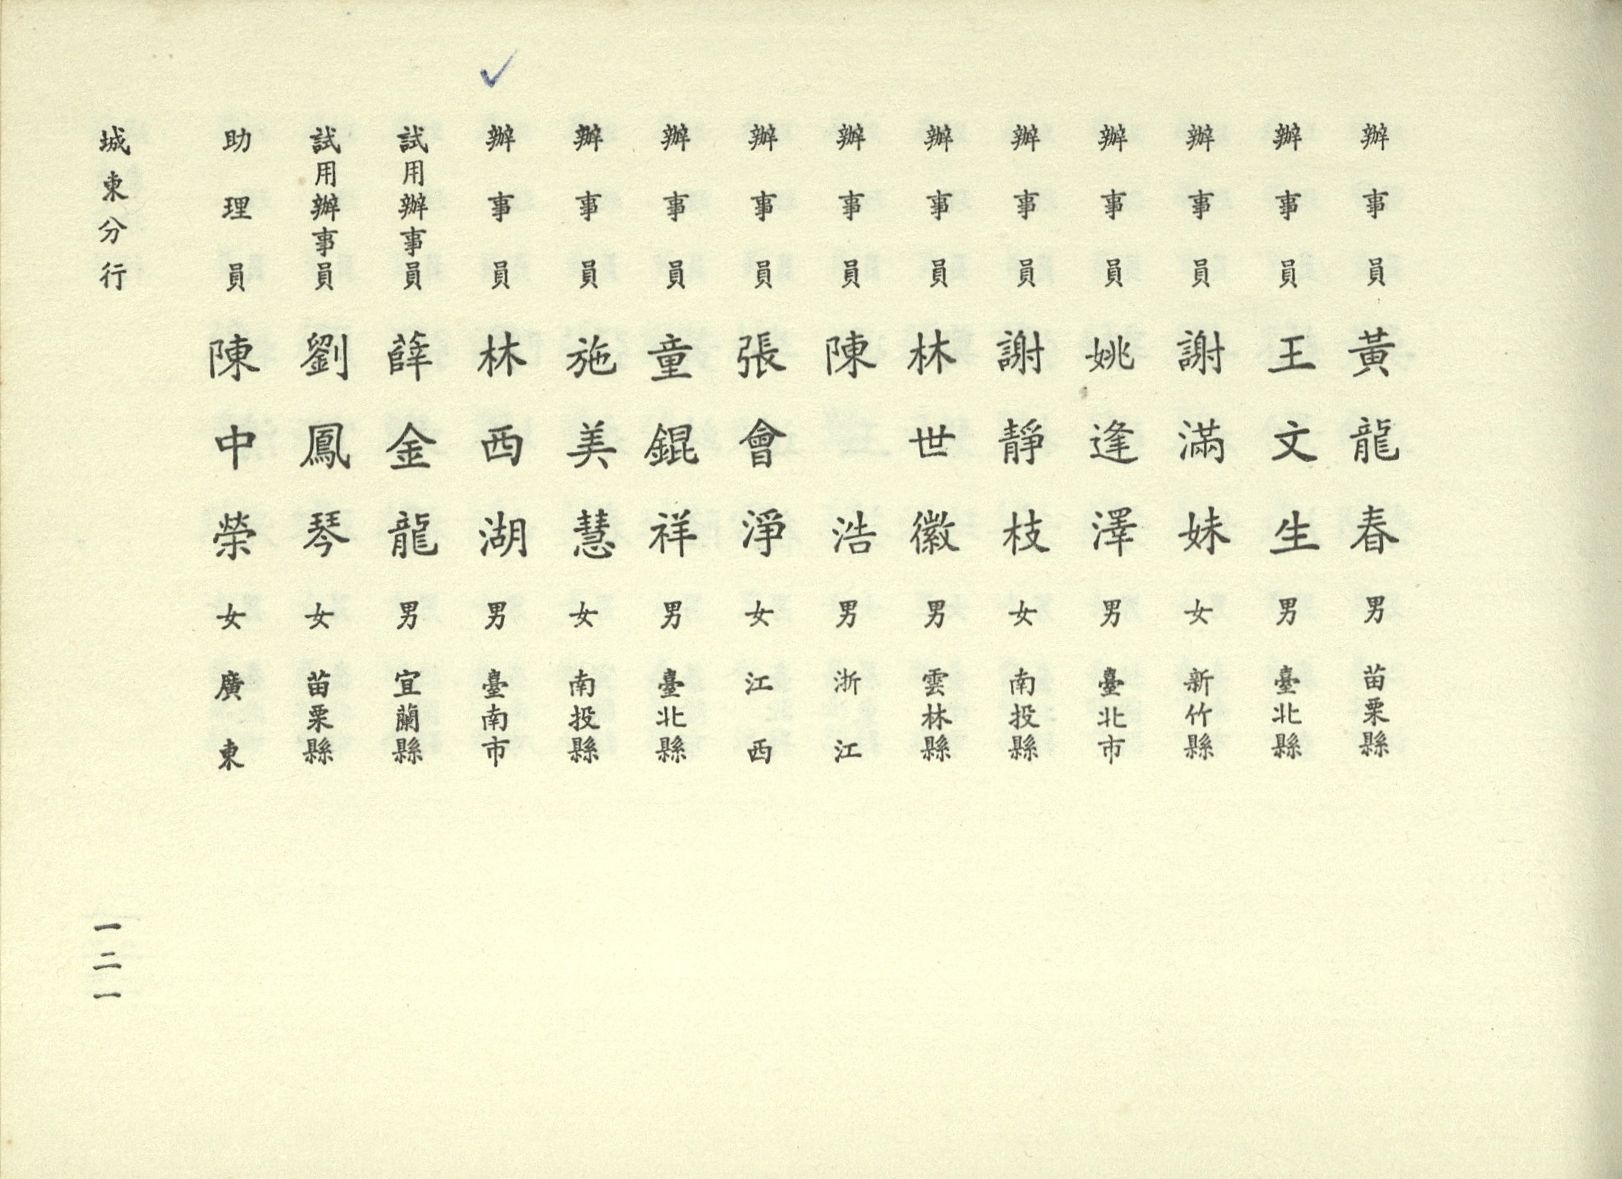 辦事員 黃龍春 男 苗栗縣
辦事員 王文生 男 臺北縣
辦事員 謝滿妹 女 新竹縣
辦事員 姚逢澤 男 臺北市
辦事員 謝靜枝 女 南投縣
辦事員 林世徽 男 雲林縣
辦事員 陳浩 男 浙江
辦事員 張會淨 女 江西
辦事員 童錕祥 男 臺北縣
辦事員 施美慧 女 南投縣
辦事員 林西湖 男 臺南市
試用辦事員 薛金龍 男 宜蘭縣
試用辦事員 劉鳳琴 女 苗栗縣
助理員 陳中榮 女 廣東
城東分行
一二一